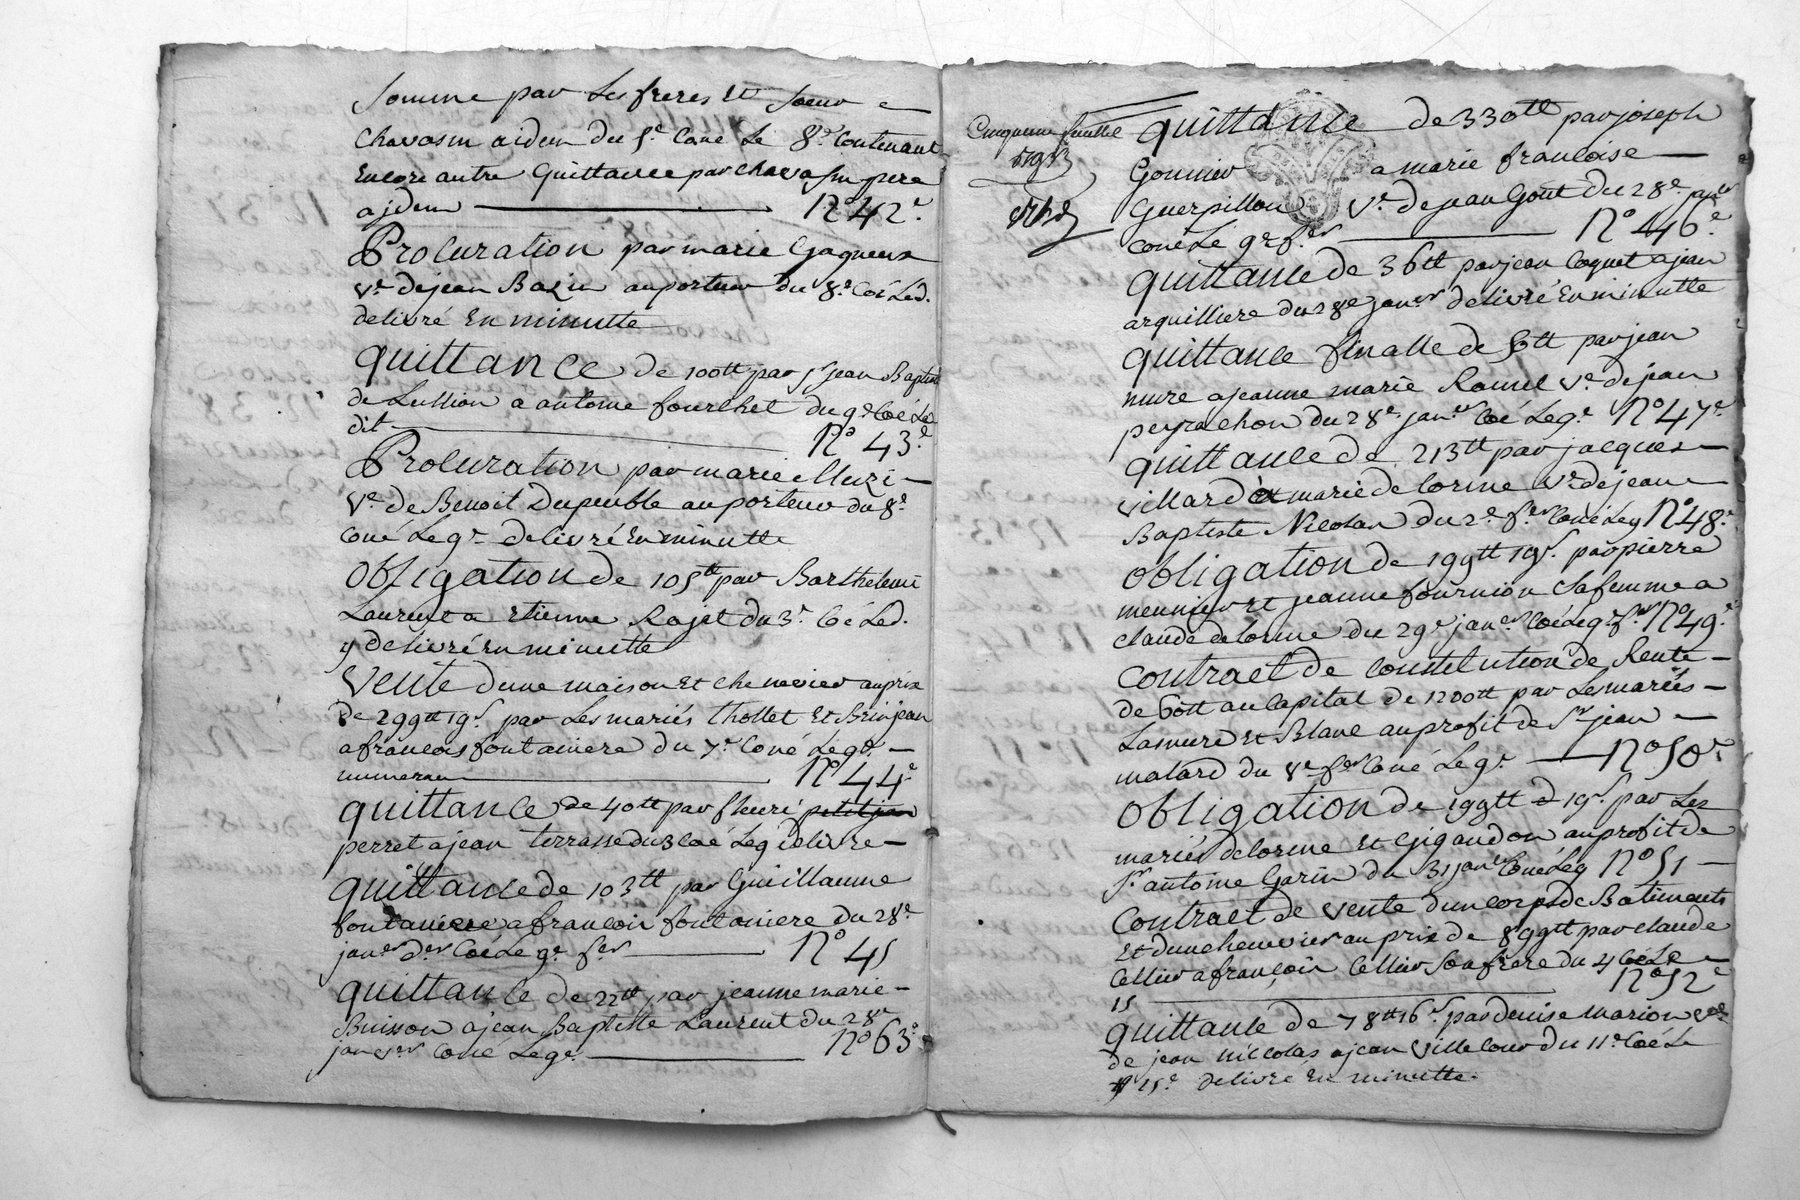 Somme par Les freres Et Soeur
Chavasin aidem du 5e Coné Le 8e Contenant
Encore autre Quittance par Chavasin pere
ajdem N° 42e
Procuration par marie Gaqueux
ve dejean Bazin auporteur du 8e Coé Led.
delivré En minutte
quittance de 100tt par sr jean Baptiste
de Lullion a antoine fourchet du 9e Coé Le
dit N° 43e
Procuration par marie Muzi
Ve de Benoit Dupeuble au porteur du 8e
Coné Le 9e delivré En minutte
Obligation de 105tt par Barthelemi
Laurent a Etienne Rajot du 3e Coé Led.
9 delivré En minutte
Vente dune maison Et chenevier au prix
de 299tt 19s par Les mariés thollet Et Brinjean
a francois fontainiere du 7e Coné Le 9e
numeram N° 44e
quittance de 40tt par fleuri petitjan
perret a jean terrasse du 3 Coé Le 9 delivre
quittance de 103tt par Guillaume
fontaniere a francois fontaniere du 28e
janer der Coé Le 9e fer N° 45
quittance de 22tt par jeanne marie
Buisson a jean Baptiste Laurent du 28e
janver Coné Le 9e N° 63e
Cinquieme feuille
quittance de 330tt par joseph
Gonnier a marie francoise
Guerpillon Ve de jean Gout du 28e janer
Coné Le 9e fer N° 46e
quittance de 36tt par jean Coquet a jean
arquilliere du 28e janer delivré En minutte
quittance finalle de 56tt par jean
mure a jeanne marie Ramel Ve de jean
peyrachon du 28e janer Coé Le 9e N° 47e
quittance de 213tt par jacques
villard a marie delorme Ve de jean
Baptiste Nicolas du 2e fer Coné Le 9 N° 48e
Obligation de 199tt 19s par pierre
meunier et jeanne fournion sa femme a
claude delorme du 29e janer Coé Le 9e fer N° 49e
Contract de Constitution de Rente
de 60tt au Capital de 1200tt par Les mariés
Lamure Et Blanc au profit de Sr jean
matard du 8e fer Coné Le 9e N° 50e
Obligation de 199tt 19s par Les
mariés delorme Et Gigandon au profit de
Sr antoine Garin du 31 janer Coné Le 9 N° 51
Contract de vente dun corps de Batiments
Et dune chenevier au prix de 899tt par claude
Cellier a françois Cellier Son frere du 4 Coé Le
15 N° 52e
quittance de 78tt 16s par denise marion Ve
de jean niccolas a jean Villecour du 11e Coé Le
15e delivré En minutte.